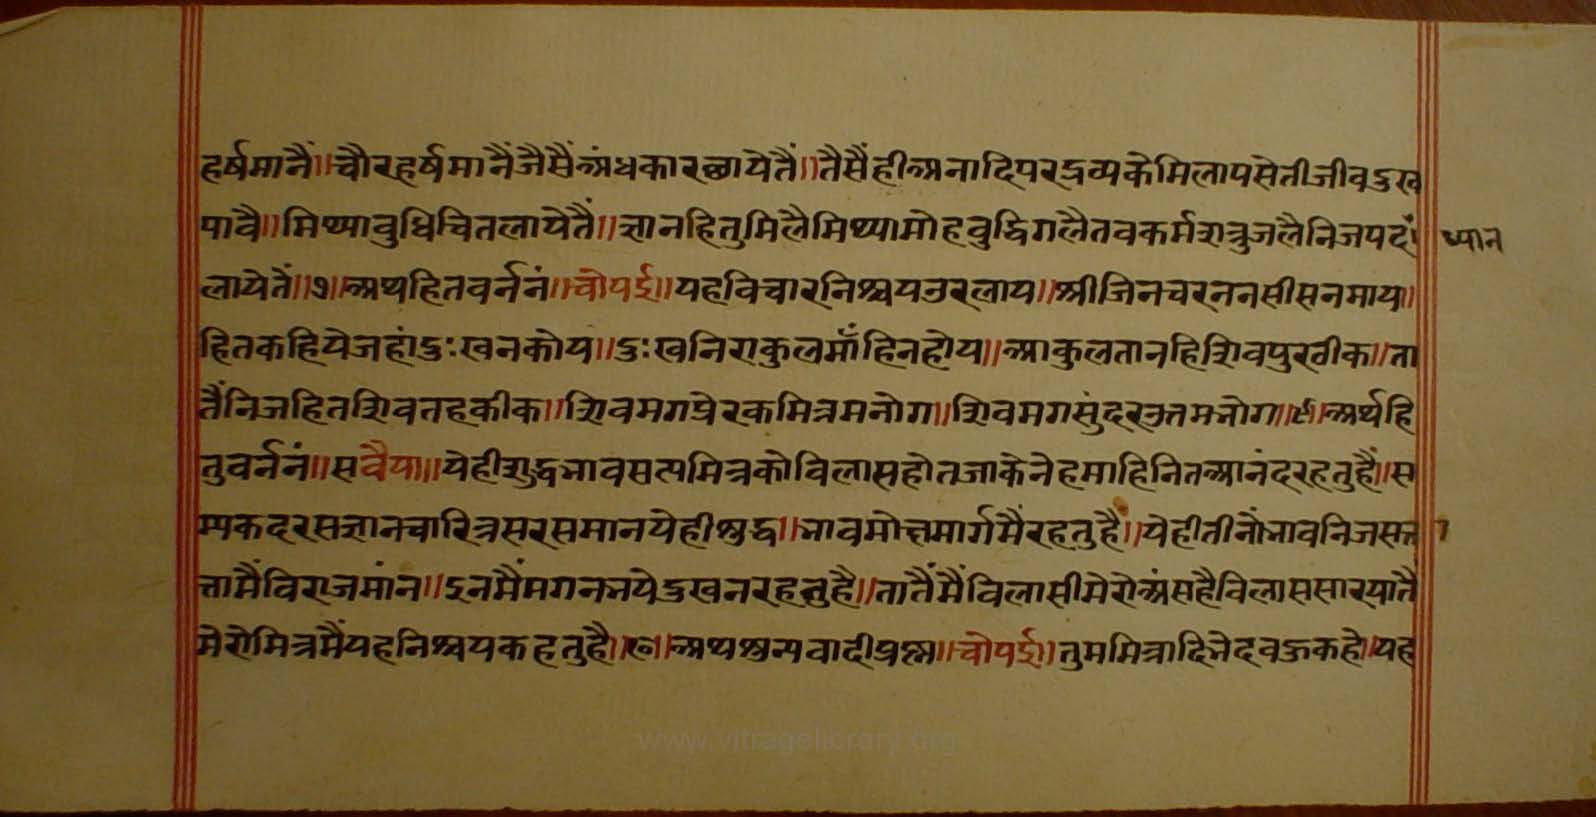 हर्षमानैं॥चौरहर्षमानैंजैसैंअंधकारछायेतैं॥तैसैंहीअनादिपरद्रव्यकेमिलापसेतीजीवदुख
पावै॥मिथ्याबुधिचितलायेतैं॥ज्ञानहितुमिलैमिथ्यामोहबुद्धिगलैतबकर्मशत्रुजलैनिजपदं ध्यान
लायेतैं॥७॥अथहितवर्ननं॥चोपई॥यहविचारनिश्चयउरलाय॥श्रीजिनचरननसीसनमाय॥
हितकहियेजहांदुःखनकोय॥दुःखनिराकुलमाँहिनहोय॥आकुलतानहिशिवपुरठीक॥ता
तैंनिजहितशिवतहकीक॥शिवमगप्रेरकमित्रमनोग॥शिवमगसुंदरउत्तमभोग॥८॥अर्थहि
तुवर्ननं॥सवैया॥येहीशुद्धभावसत्यमित्रकोविलासहोतजाकेनेहमाहिनितआनंदरहतुहैं॥स
म्यकदरसज्ञानचारित्रसरसमानयेहीशुद्ध॥भावमोक्षमार्गमैंरहतुहैं॥येहीतीनोंभावनिजसत्त
त्तामैंविराजमांन॥इनमैंमगनभयेदुखनरहतुहै॥तातैंमैंविलासीमेरोअंसहैविलाससारयातैं
मेरोमित्रमैंयहनिश्चयकहतुहै॥९॥अथशुन्यवादीप्रश्न॥चोपई॥तुममित्रादिभेदबऊकहे॥यह
www.vitragelibrary.org